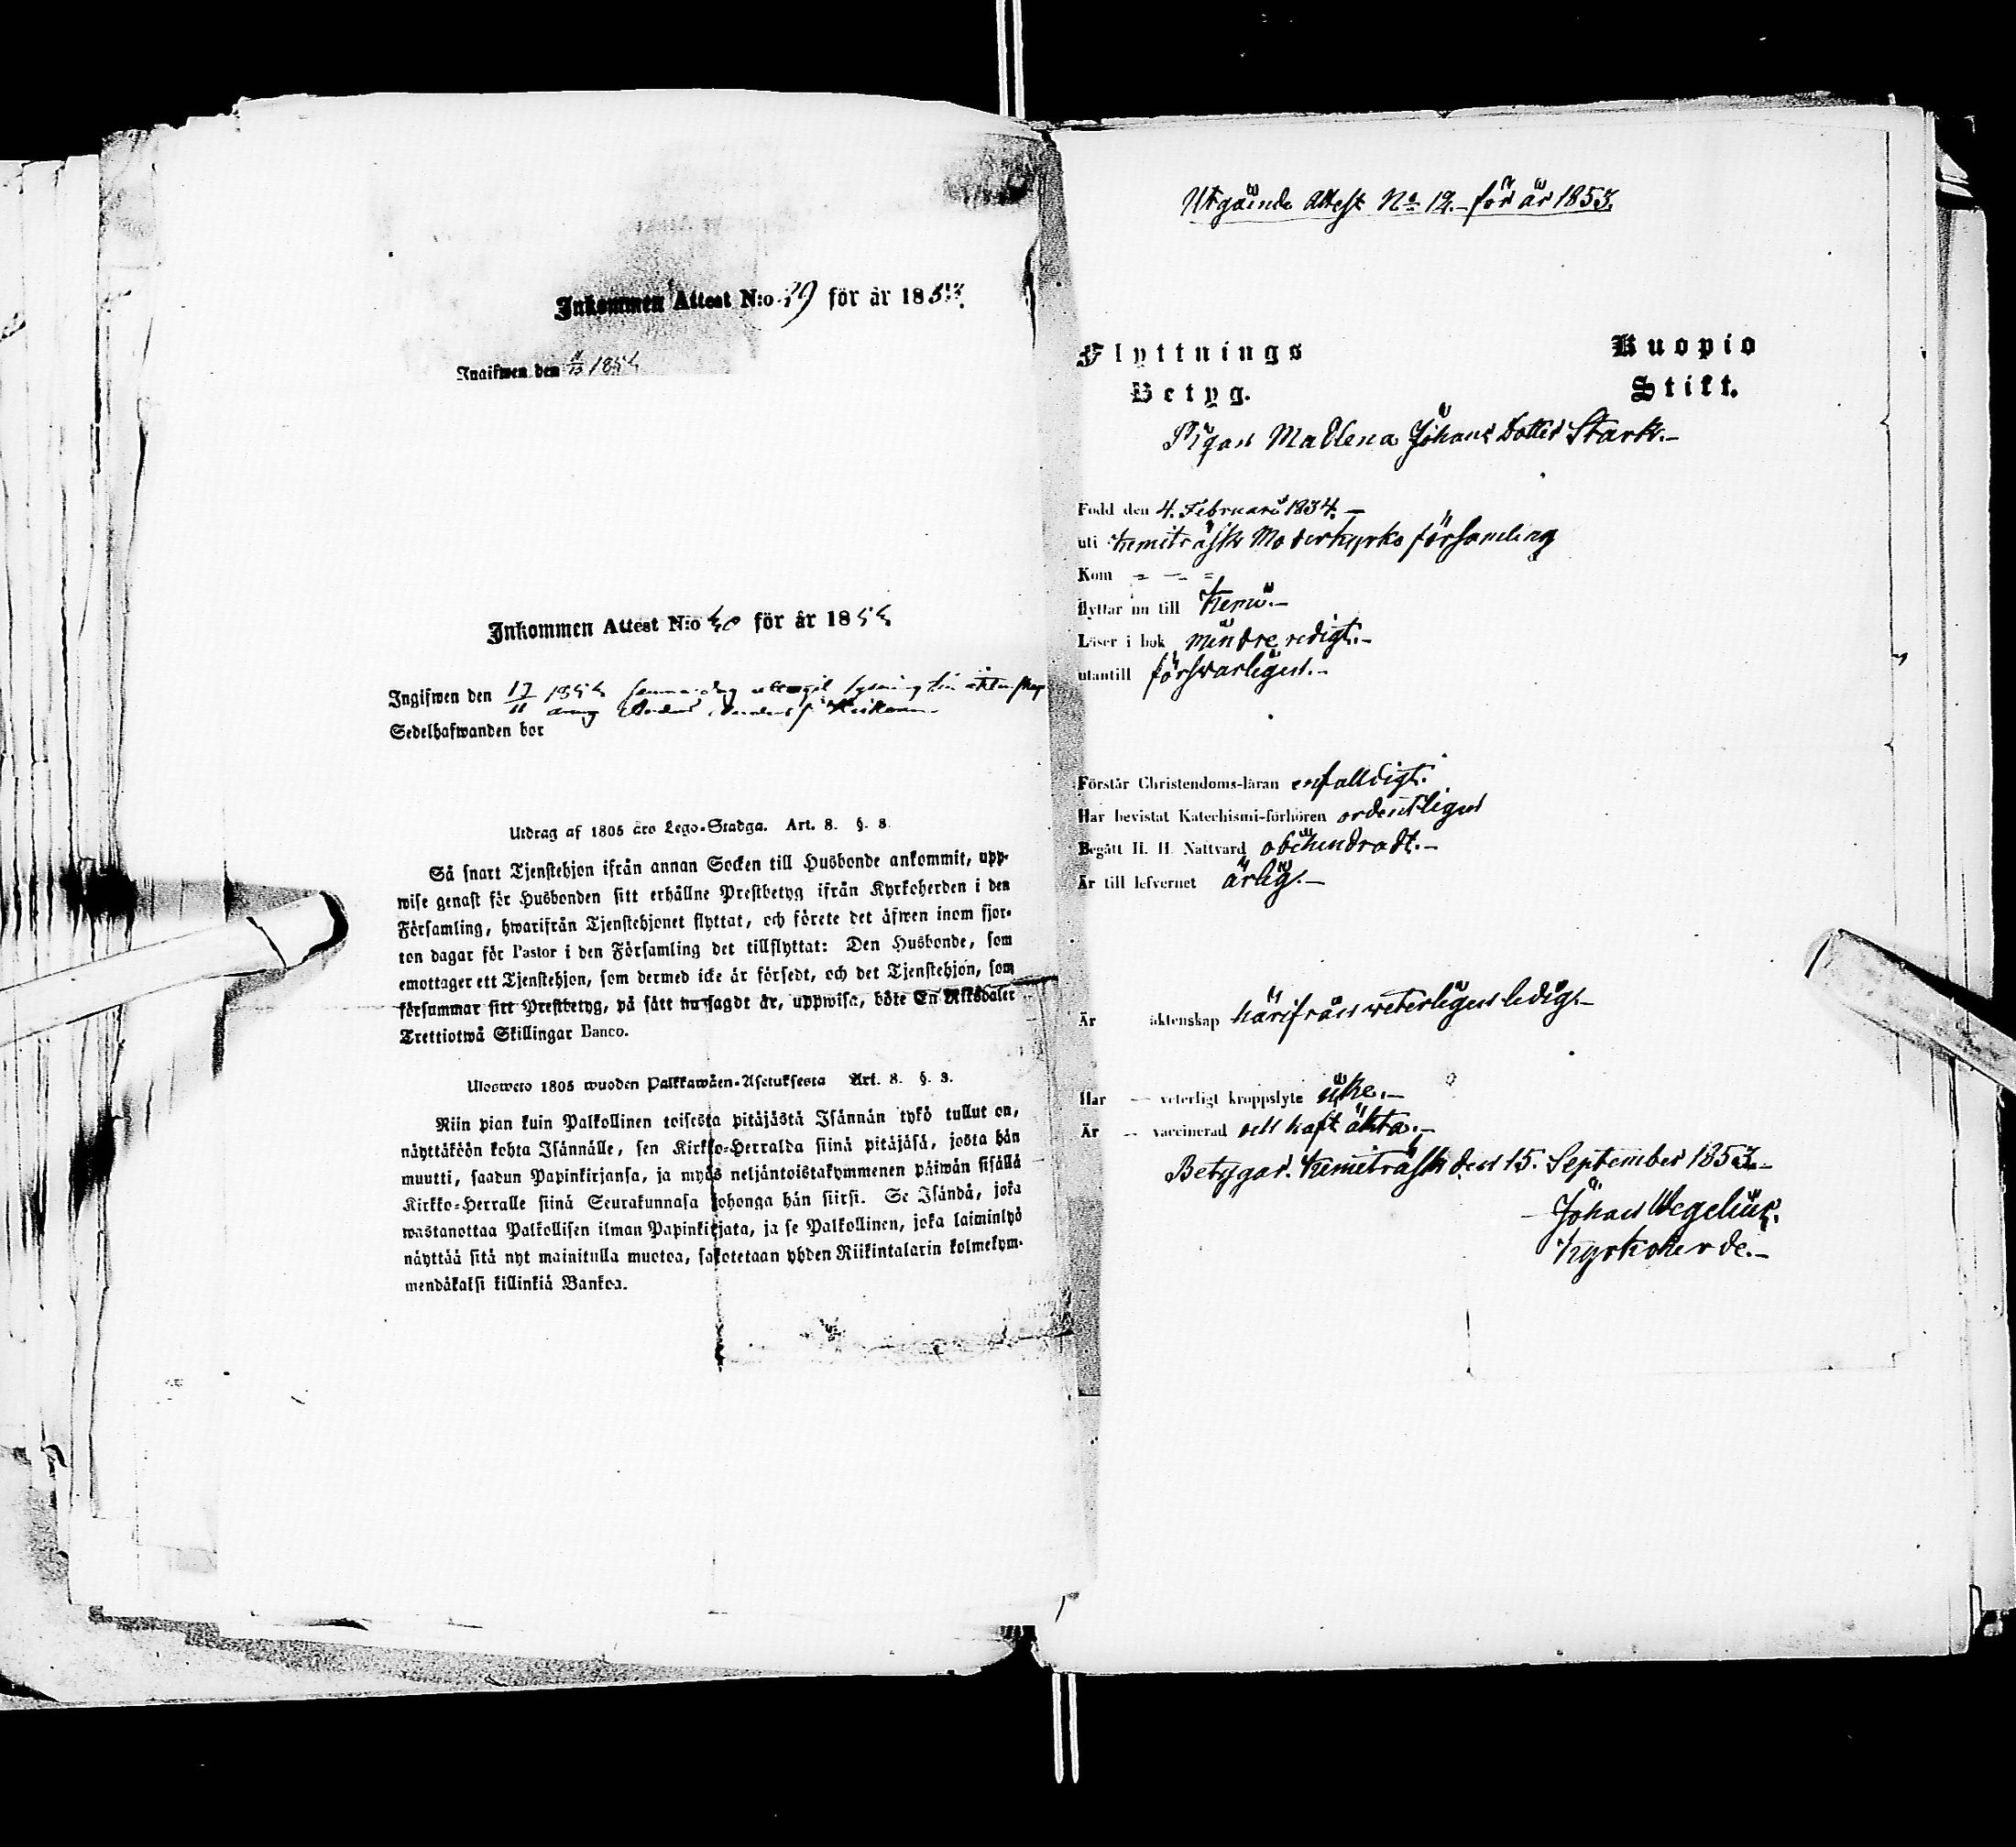 Inkommen Attest N:o 39 för år 1853.
Ingifwen den 1854
Inkommen Attest N:o 40 för år 1854
Ingifwen den 17/11 1854 samma dag lysning till äktenskap
Sedelhafwanden bor
Utdrag af 1805 års Lego-Stadga. Art. 8. §. 8.
Så snart Tjenstehjon ifrån annan Socken till Husbonde ankommit, upp-
wise genast för Husbonden sitt erhållne Prestbetyg ifrån Kyrkoherden i den
Församling, hwarifrån Tjenstehjonet flyttat, och förete det äfwen inom fjor-
ton dagar för Pastor i den Församling det tillflyttat: Den Husbonde, som
emottager ett Tjenstehjon, som dermed icke är försedt, och det Tjenstehjon, som
försummar sitt Prestbetyg, på sätt nu sagdt är, uppwisa, böte En Riksdaler
Trettiotwå Skillingar Banco.
Ulosweto 1805 wuoden Palkkawäen-Asetuksesta Art. 8. §. 8.
Niin pian kuin Palkollinen toisesta pitäjästä Isännän tykö tullut on,
näyttäköön kohta Isännälle, sen Kirkko-Herralda siinä pitäjäsä, josta hän
muutti, saadun Papinkirjansa, ja myös neljäntoistakymmenen päiwän sisällä
Kirkko-Herralle siinä Seurakunnasa johonga hän siirsi. Se Isändä, joka
wastanottaa Palkollisen ilman Papinkirjata, ja se Palkollinen, joka laiminlyö
näyttää sitä nyt mainitulla muotoa, sakotetaan yhden Riikintalarin kolmekym-
mendäkaksi killinkiä Bankoa.
Utgående Attest No 12.- för år 1853.
Flyttnings Kuopio
Betyg. Stift.
Pigan Madlena Johans Dotter Stark.-
Född den 4. Februari 1834.-
uti Kemiträsk Moderkyrko församling
Kom
flyttar nu till Kemi.-
Läser i bok mindre redigt.-
utantill försvarligen.-
Förstår Christendoms-läran enfalldigt.
Har bevistat Katechismi-förhören ordentligen
Begått H. H. Nattvard obehindradt.-
Är till lefvernet ärlig.-
Är äktenskap härifrån veterligen ledig.-
Har veterligt kroppslyte icke.-
Är vaccinerad och haft äkta.-
Betygar. Kemiträsk den 15. September 1853.-
Johan Wegelius.
Kyrkoherde.-